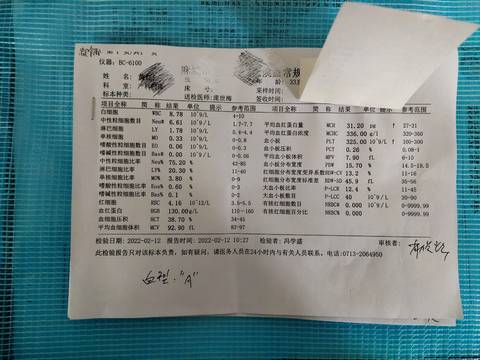 仪器: BC-6100 常规
姓 名: 年 龄: 33
科 室: 产科 床 号: 采样时间:
标本种类: 送检医师: 庞世梅 签收时间:
项目全称 简 称 结 果 单 位 提示 参考范围 项目全称 简 称 结 果 单 位 提示 参考范围
白细胞 WBC 8.78 10^9/L 4-10 平均血红蛋白量 MCH 31.20 ↑ 27-31
中性粒细胞数目 Neu# 6.61 10^9/L 1.7-7.7 平均血红蛋白浓度 MCHC 336.00 g/L 320-360
淋巴细胞 LY 1.78 0.8-4.4 血小板 PLT 325.00 10^9/L ↑ 100-300
单核细胞 MO 0.33 血小板压积 PCT 0.26 %
嗜酸性粒细胞数目 EO 0.06 10^9/L 平均血小板体积 MPV 7.90 6-10
嗜碱性粒细胞数目 Bas# 0.00 血小板分布宽度 PDW 15.70 14.5-18.5
中性粒细胞比率 Neu% 75.20 % 红细胞分布宽度变异系数 13.2 %
淋巴细胞比率 LY% 20.30 % 红细胞分布宽度标准差
单核细胞比率 MON 3.80 % 大血小板比率 P-LCR 12.4 % 11-45
嗜酸性粒细胞比率 Eos% 0.60 % 大血小板数目 P-LCC 40 10^9/L
嗜碱性粒细胞比率 Bas% 0.1 % 有核红细胞数目 NRBC# 0.000 10^9/L 0-9999.99
红细胞 RBC 4.16 10^12/L 3.5-5.5 有核红细胞百分比 NRBC% 0.00 0-9999.99
血红蛋白 HGB 130.00 g/L 110-160
血细胞压积 HCT 38.70 34-45
平均血细胞体积 MCV 92.90 fL 82-97
检验日期: 2022-02-12 报告时间: 2022-02-12 10:27 检验者: 冯学盛 审核者:
此检验报告只对该标本负责, 如有疑问, 请医务人员在24小时内与有关人员联系, 电话:0713-2064950
血型: "A"